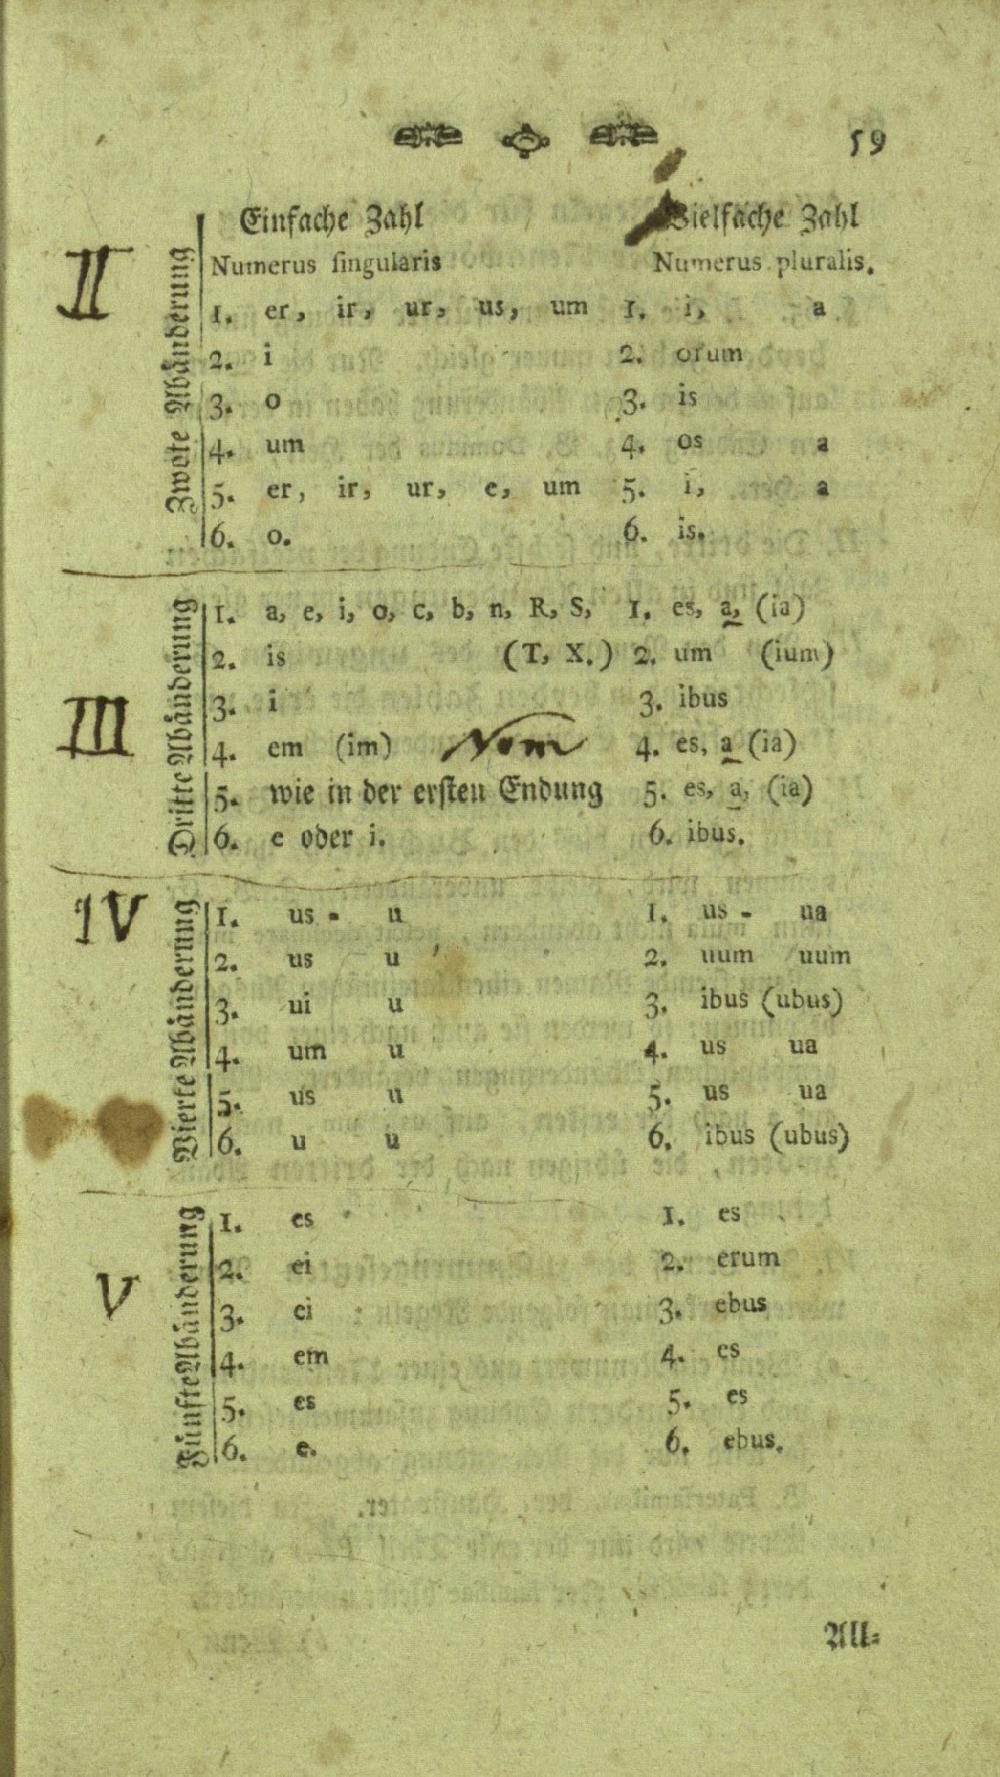 59
Einfache Zahl Vielfache Zahl
Numerus singularis Numerus pluralis.
II
Zwote Abänderung
1. er, ir, ur, us, um 1. i, a
2. i 2. orum
3. o 3. is
4. um 4. os a
5. er, ir, ur, e, um 5. i, a
6. o. 6. is.
III
Dritte Abänderung
1. a, e, i, o, c, b, n, R, S, 1. es, a, (ia)
2. is (T, X.) 2. um (ium)
3. i 3. ibus
4. em (im) Nom 4. es, a (ia)
5. wie in der ersten Endung 5. es, a, (ia)
6. e oder i. 6. ibus.
IV
Vierte Abänderung
1. us - u 1. us - ua
2. us u 2. uum uum
3. ui u 3. ibus (ubus)
4. um u 4. us ua
5. us u 5. us ua
6. u u 6. ibus (ubus)
V
Fünfte Abänderung
1. es 1. es
2. ei 2. erum
3. ei 3. ebus
4. em 4. es
5. es 5. es
6. e. 6. ebus.
All=